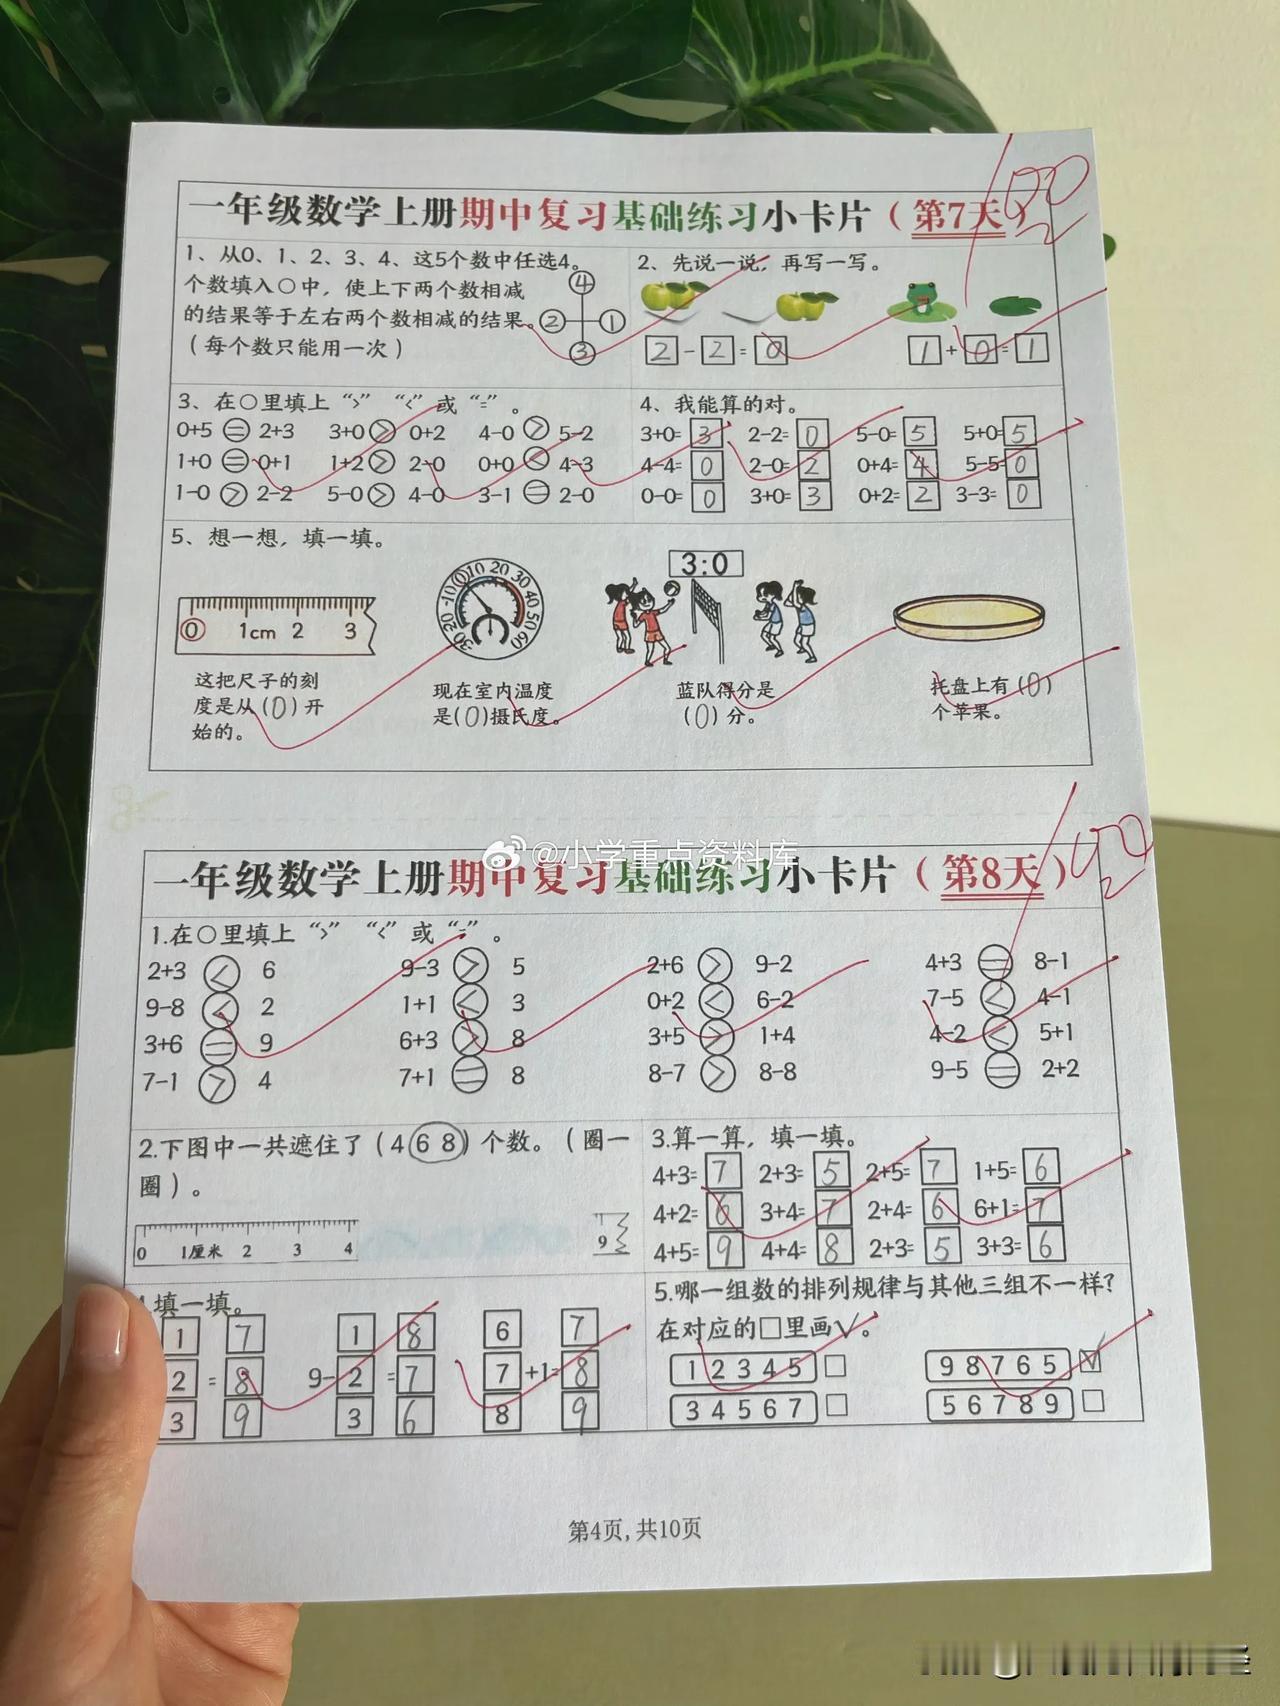 一年级数学上册期中复习基础练习小卡片（第7天）
100
1、从0、1、2、3、4、这5个数中任选4。
个数填入○中，使上下两个数相减
的结果等于左右两个数相减的结果。
（每个数只能用一次）
4
2 1
3
2、先说一说，再写一写。
2-2=0 1+0=1
3、在○里填上“>” “<”或“=”。
0+5=2+3 3+0>0+2 4-0>5-2
1+0=0+1 1+2>2-0 0+0<4-3
1-0>2-2 5-0>4-0 3-1=2-0
4、我能算的对。
3+0=3 2-2=0 5-0=5 5+0=5
4-4=0 2-0=2 0+4=4 5-5=0
0-0=0 3+0=3 0+2=2 3-3=0
5、想一想，填一填。
0 1cm 2 3
30 20 -10 0 10 20 30 40 50 60
3:0
这把尺子的刻
度是从(0)开
始的。
现在室内温度
是(0)摄氏度。
蓝队得分是
(0)分。
托盘上有(0)
个苹果。
@小学重点资料库
一年级数学上册期中复习基础练习小卡片（第8天）
100
1.在○里填上“>” “<”或“=”。
2+3<6 9-3>5 2+6>9-2 4+3=8-1
9-8<2 1+1<3 0+2<6-2 7-5<4-1
3+6=9 6+3>8 3+5>1+4 4-2<5+1
7-1>4 7+1=8 8-7>8-8 9-5=2+2
2.下图中一共遮住了（4 6 8）个数。（圈一
圈）。
0 1厘米 2 3 4 9
3.算一算，填一填。
4+3=7 2+3=5 2+5=7 1+5=6
4+2=6 3+4=7 2+4=6 6+1=7
4+5=9 4+4=8 2+3=5 3+3=6
填一填。
1 7 1 8 6 7
2 = 8 9- 2 = 7 7 +1= 8
3 9 3 6 8 9
5.哪一组数的排列规律与其他三组不一样？
在对应的□里画√。
1 2 3 4 5 □ 9 8 7 6 5 ☑
3 4 5 6 7 □ 5 6 7 8 9 □
第4页，共10页